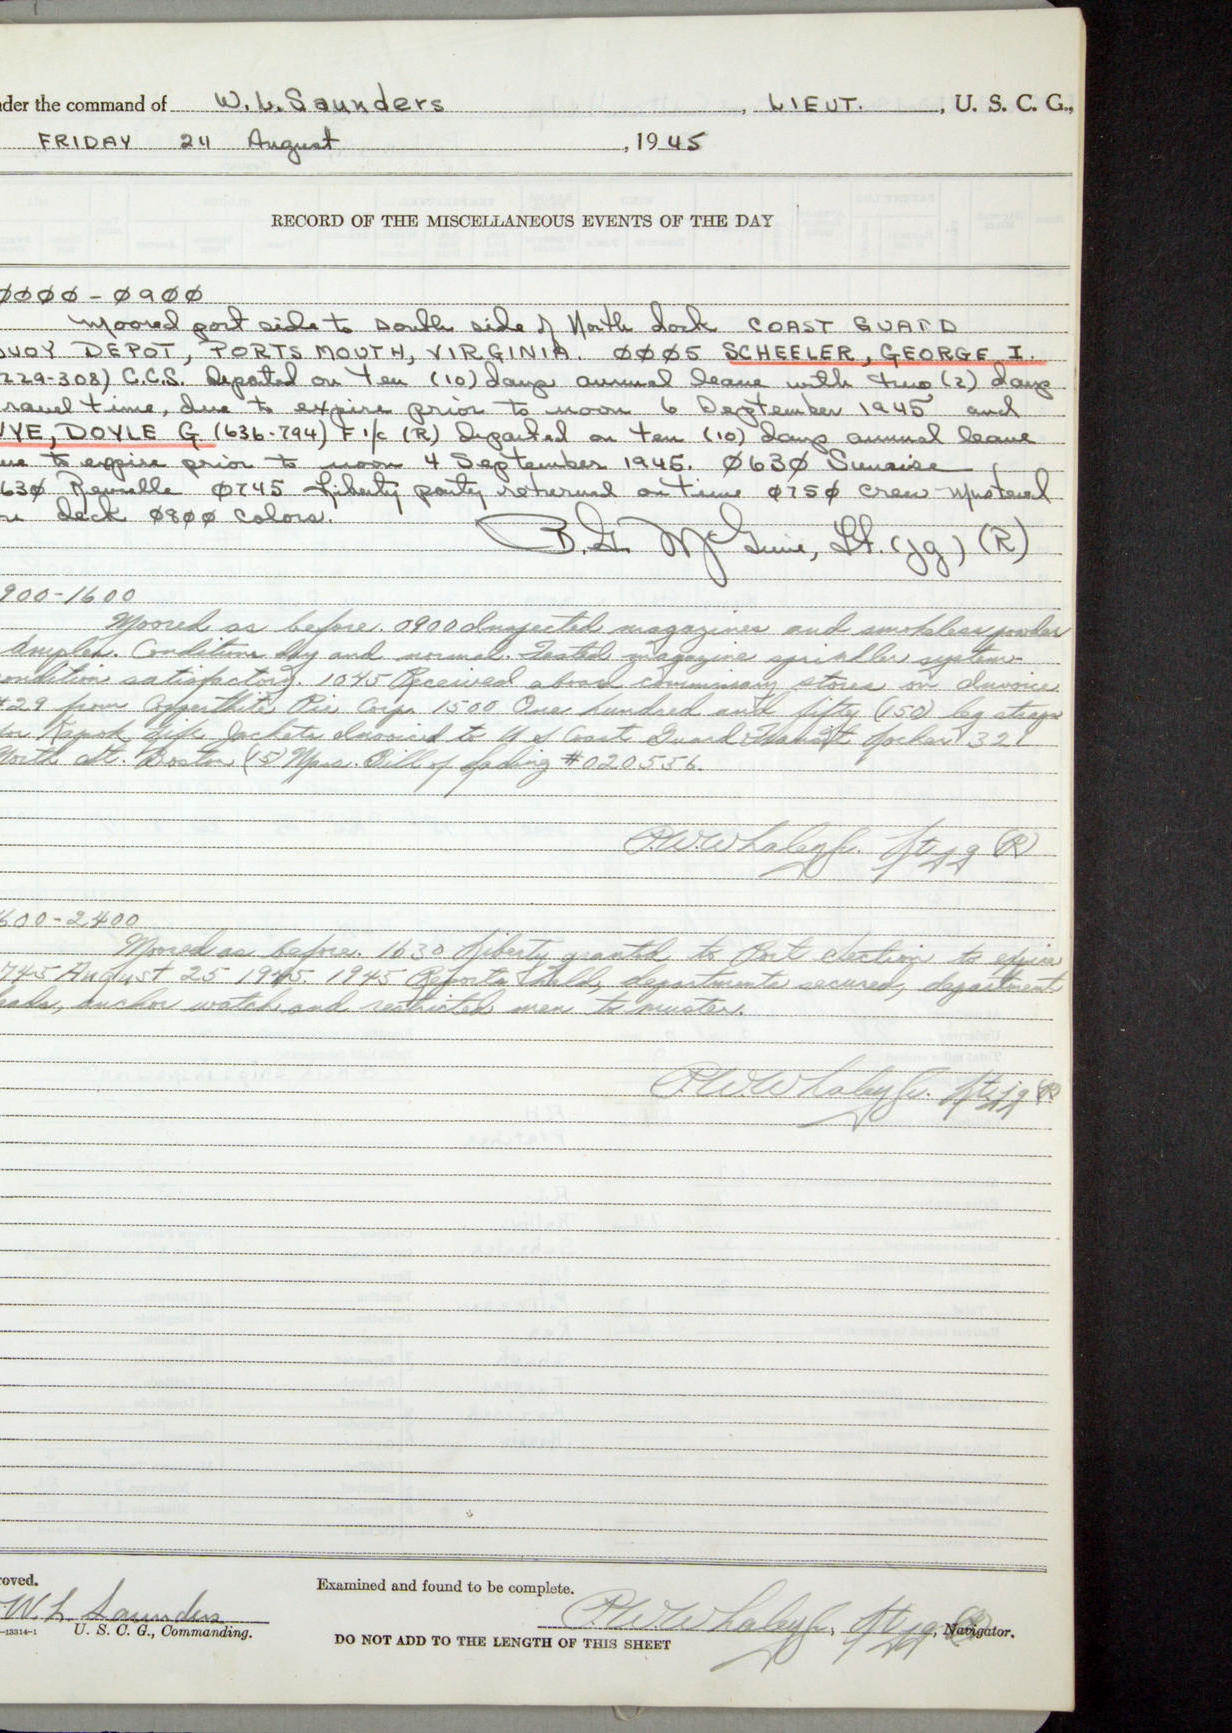 nder the command of W. L. Saunders, LIEUT., U. S. C. G.,
FRIDAY 24 August, 1945
RECORD OF THE MISCELLANEOUS EVENTS OF THE DAY
ØØØØ - Ø9ØØ
Moored port side to south side of North dock COAST GUARD
UOY DEPOT, PORTSMOUTH, VIRGINIA. ØØØ5 SCHEELER, GEORGE I.
229-308) C.C.S. Departed on ten (10) days annual leave with two (2) days
ravel time, due to expire prior to noon 6 September 1945 and
NYE, DOYLE G. (636-794) F1/c (R) Departed on ten (10) days annual leave
ue to expire prior to noon 4 September 1945. Ø63Ø Sunrise
63Ø Reveille Ø745 Liberty party returned on time Ø75Ø crew mustered
on deck Ø8ØØ Colors.
B. G. McGuire, Lt. (jg) (R)
900-1600
Moored as before. 0900 Inspected magazines and smokeless powder
samples. Conditions dry and normal. Tested magazine sprinkler system
ondition satisfactory. 1045 Received aboard commissary stores on Invoice
429 from Pie Corp. 1500 One hundred and fifty (150) leg straps
for Kapok Life Jackets invoiced to U S Coast Guard Locker 321
North St. Boston (15) Mass. Bill of Lading #020556.
P.W. Whaley Jr. Lt jg (R)
600-2400
Moored as before. 1630 Liberty granted to Port section to expire
745 August 25 1945. 1945 Reports held, departments secured, department
eads, anchor watch and restricted men to muster.
P.W. Whaley Jr. Lt jg (R)
roved. Examined and found to be complete.
W. L. Saunders P.W. Whaley Jr., Lt jg (R), Navigator.
-13314-1 U. S. C. G., Commanding.
DO NOT ADD TO THE LENGTH OF THIS SHEET